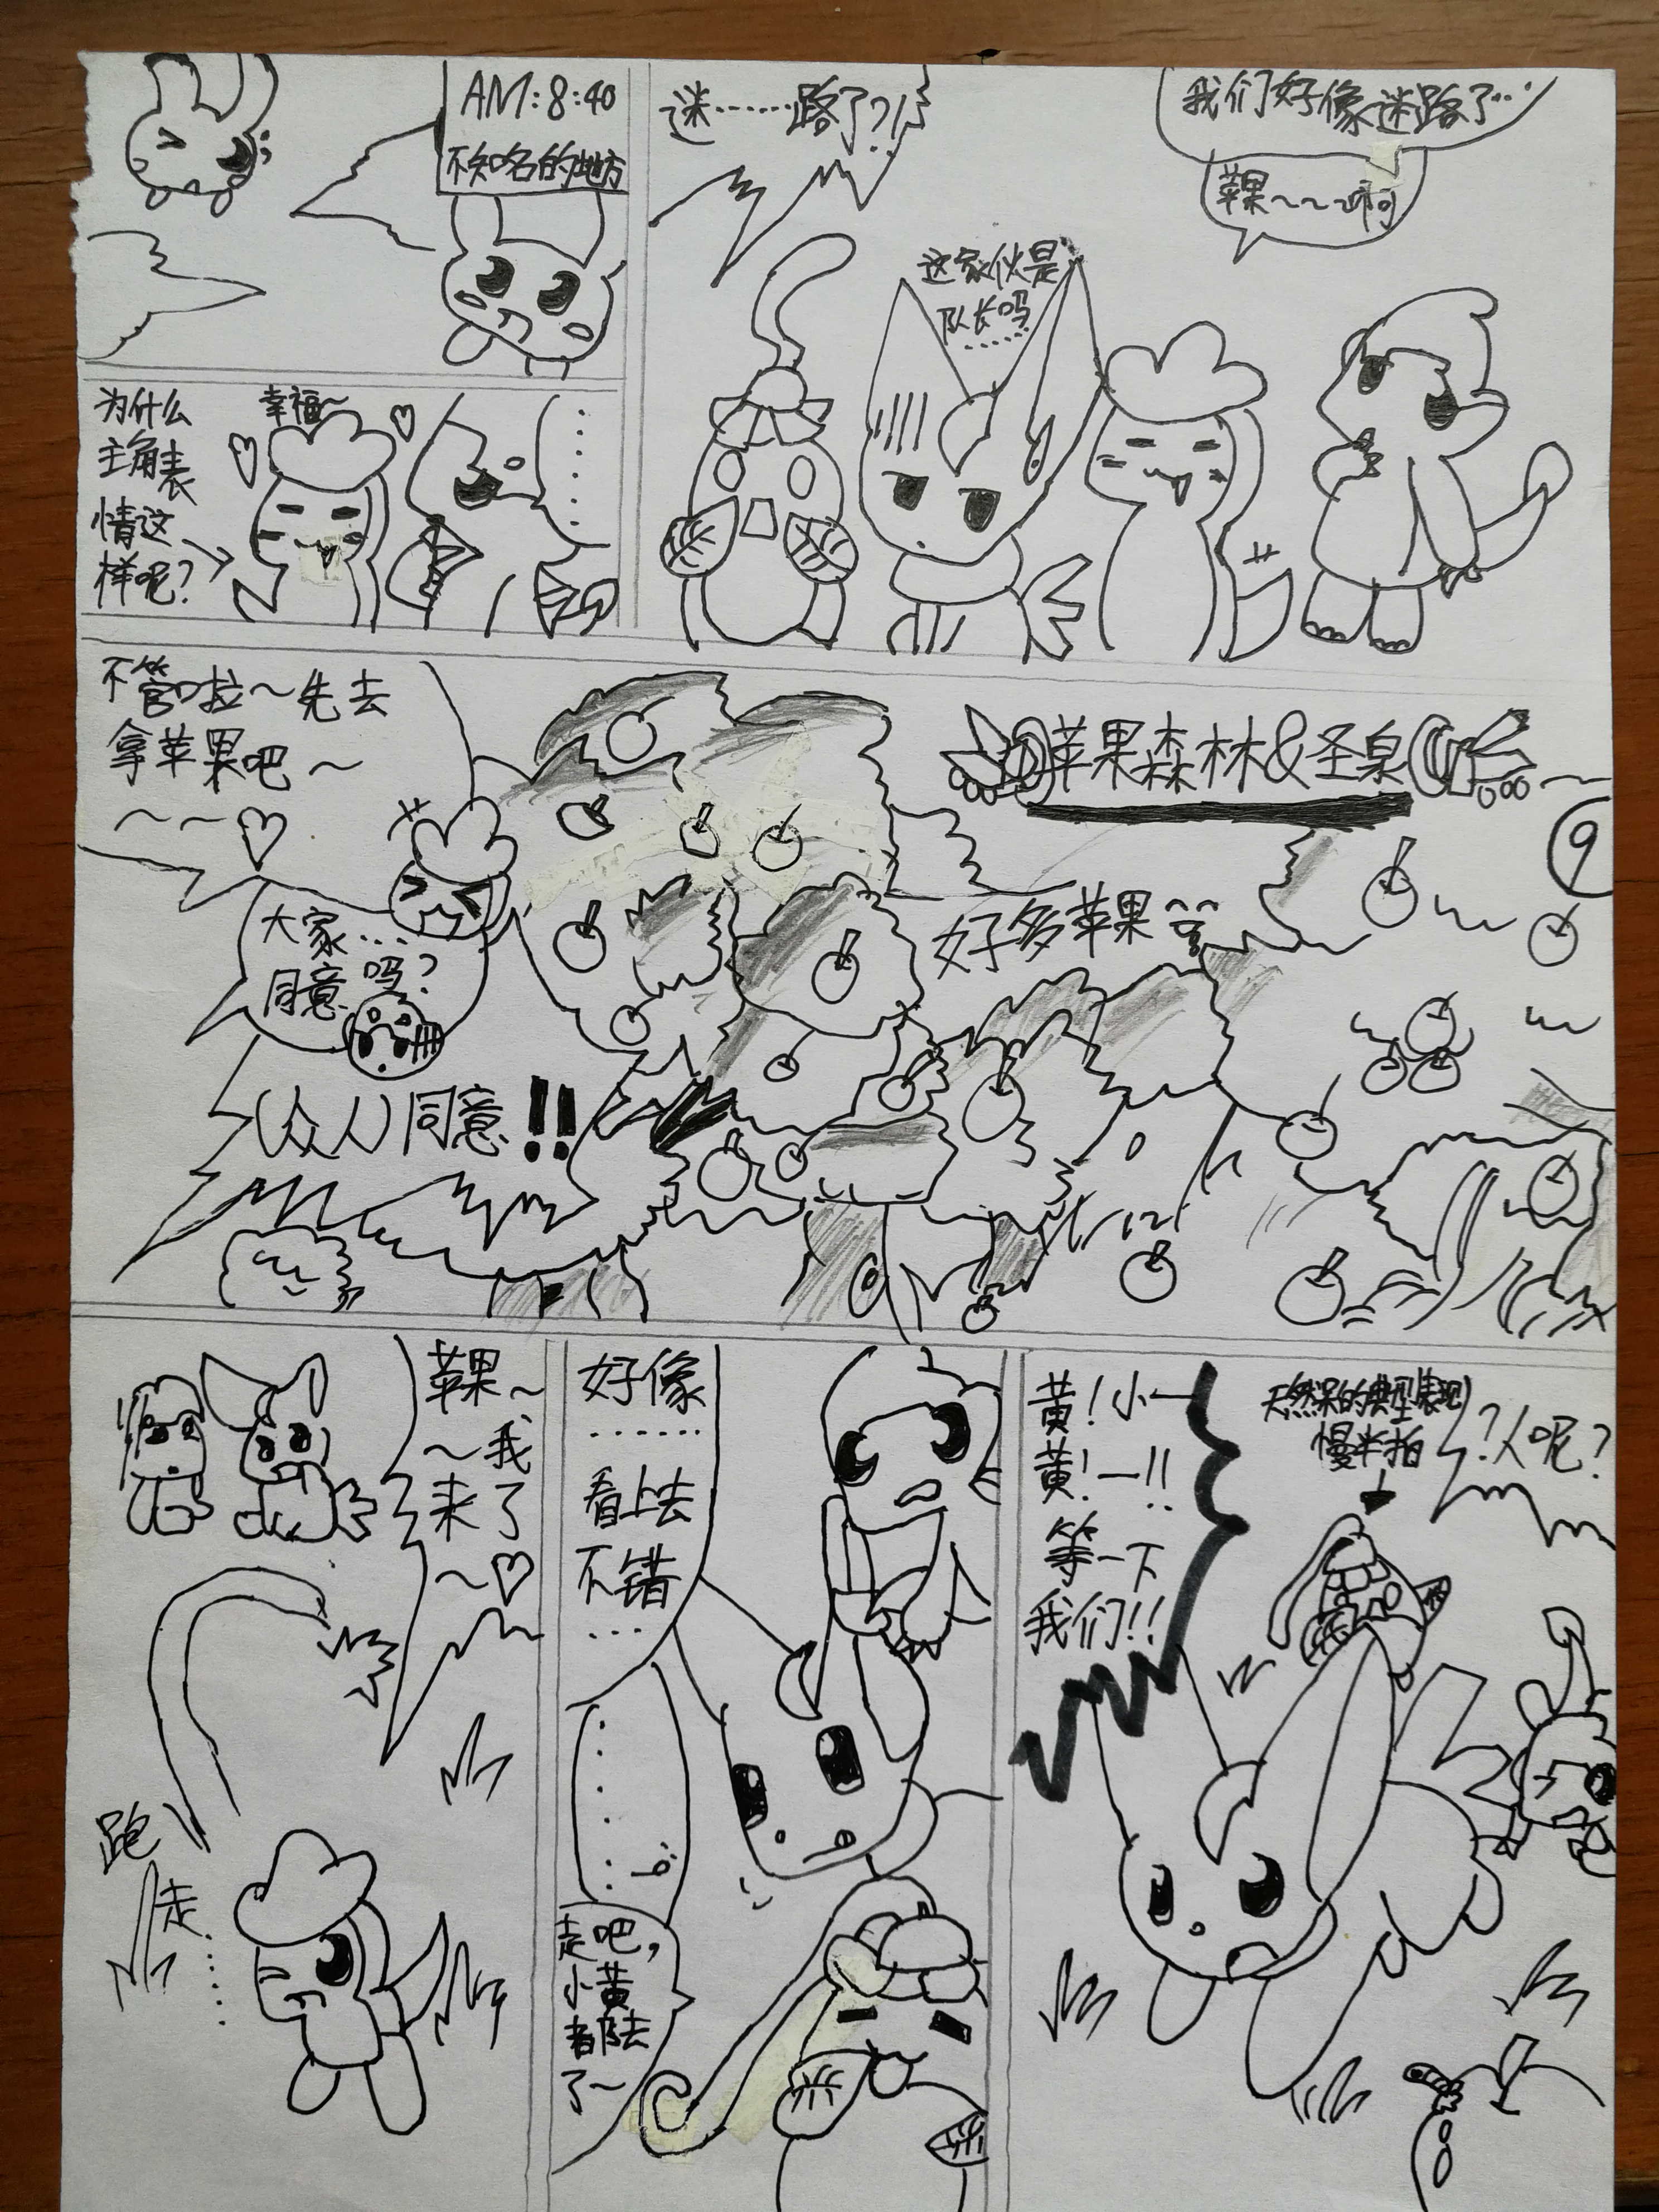 AM:8:40
不知名的地方
迷……路了?!
我们好像迷路了…
苹果~~~啊
这家伙是
队长吗
……
为什么
主角表
情这
样呢?
幸福~
……
不管啦~先去
拿苹果吧~
~~♡
苹果森林&圣泉
9
大家…
同意吗?
好多苹果~~
(众人)同意!!
苹果~
~我
来了
~♡
跑
走……
好像
……
看上去
不错
…
……
走吧,
小黄
都去
了~
黄!小一
黄!一!!
等一下
我们!!
天然呆的典型表现
慢半拍
?人呢?